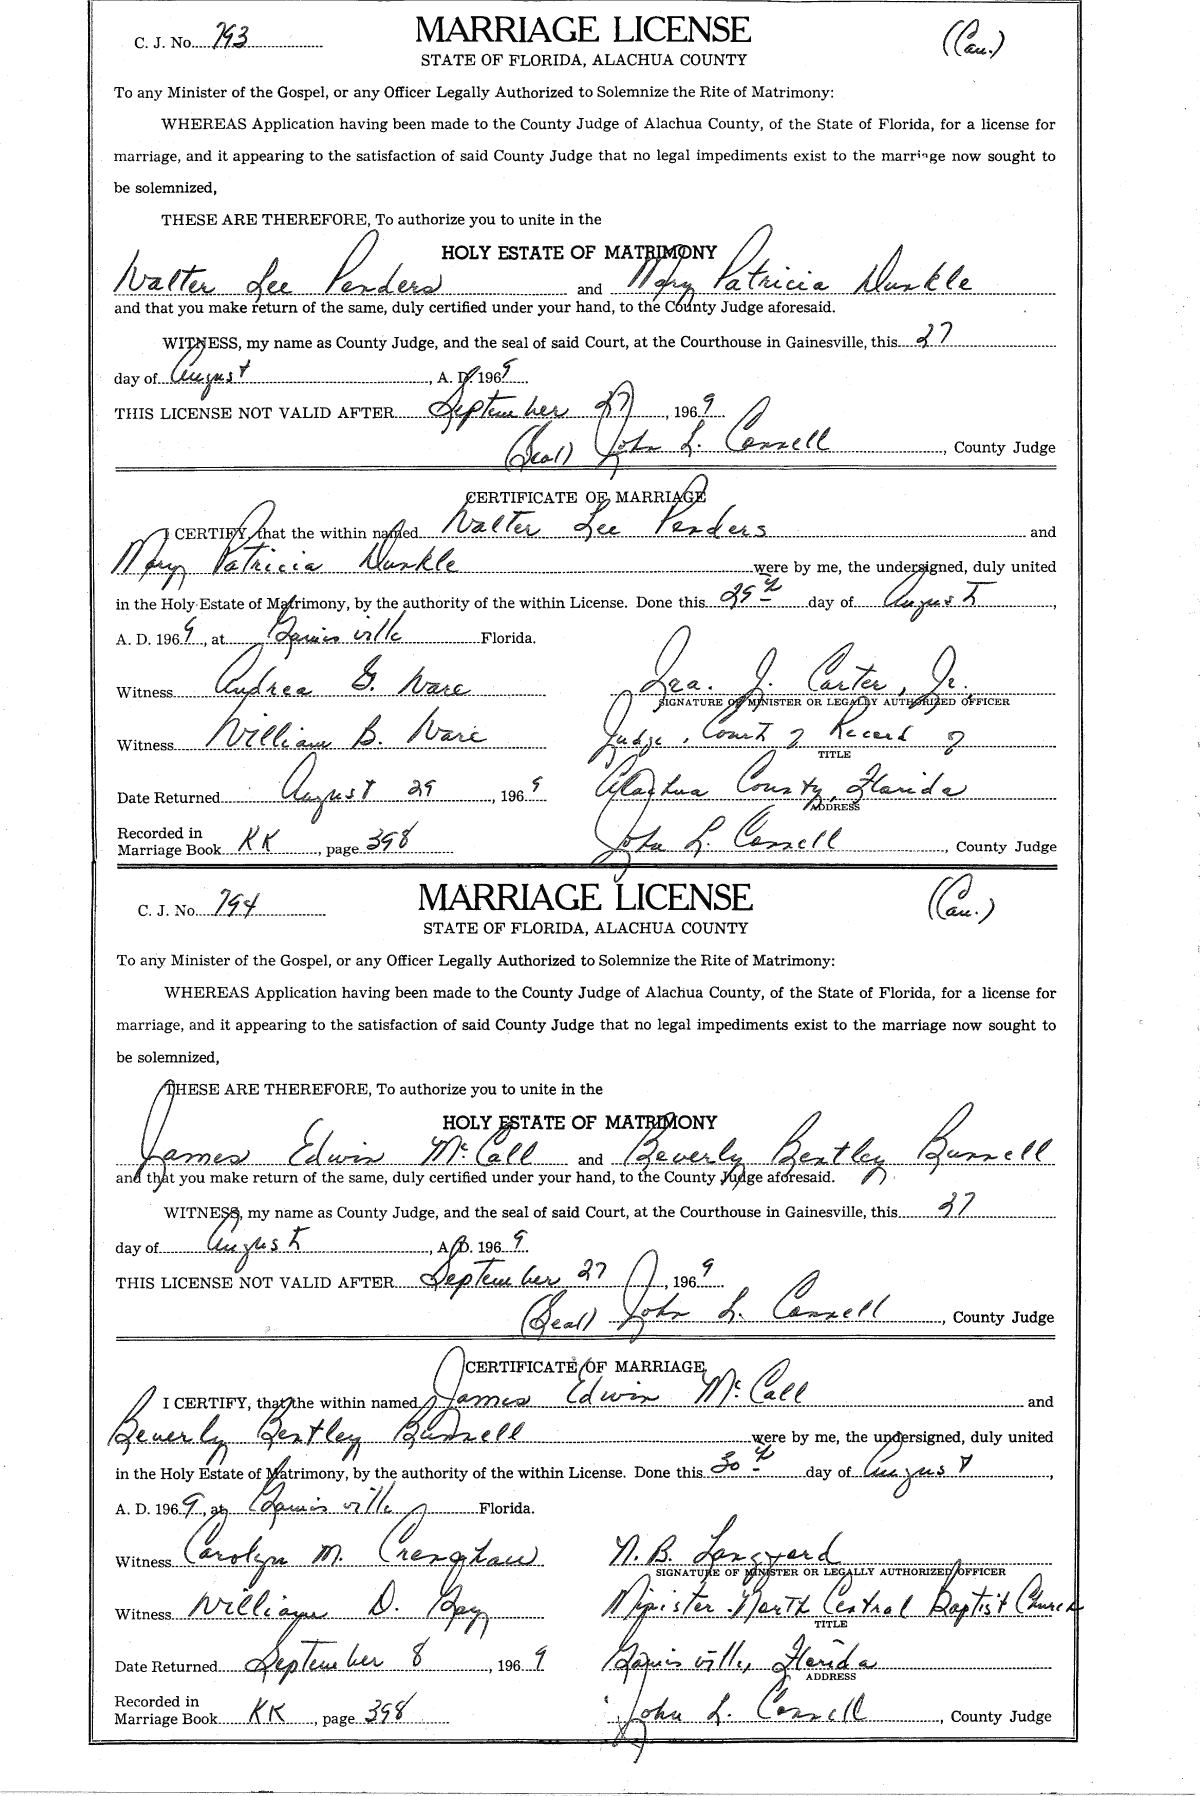 C. J. No. 793
MARRIAGE LICENSE
(Cau.)
STATE OF FLORIDA, ALACHUA COUNTY
To any Minister of the Gospel, or any Officer Legally Authorized to Solemnize the Rite of Matrimony:
WHEREAS Application having been made to the County Judge of Alachua County, of the State of Florida, for a license for
marriage, and it appearing to the satisfaction of said County Judge that no legal impediments exist to the marriage now sought to
be solemnized,
THESE ARE THEREFORE, To authorize you to unite in the
HOLY ESTATE OF MATRIMONY
Walter Lee Penders and Mary Patricia Dunkle
and that you make return of the same, duly certified under your hand, to the County Judge aforesaid.
WITNESS, my name as County Judge, and the seal of said Court, at the Courthouse in Gainesville, this 27
day of August, A. D. 1969
THIS LICENSE NOT VALID AFTER September 27, 1969
(Seal) John L. Connell, County Judge
CERTIFICATE OF MARRIAGE
I CERTIFY, that the within named Walter Lee Penders and
Mary Patricia Dunkle were by me, the undersigned, duly united
in the Holy Estate of Matrimony, by the authority of the within License. Done this 29th day of August,
A. D. 1969, at Gainesville Florida.
Witness Andrea G. Ware
Jra. J. Carter, Jr.
SIGNATURE OF MINISTER OR LEGALLY AUTHORIZED OFFICER
Witness William B. Ware
Judge, Court of Record of
TITLE
Date Returned August 29, 1969
Alachua County, Florida
ADDRESS
Recorded in
Marriage Book KK, page 398
John L. Connell, County Judge
C. J. No. 794
MARRIAGE LICENSE
(Cau.)
STATE OF FLORIDA, ALACHUA COUNTY
To any Minister of the Gospel, or any Officer Legally Authorized to Solemnize the Rite of Matrimony:
WHEREAS Application having been made to the County Judge of Alachua County, of the State of Florida, for a license for
marriage, and it appearing to the satisfaction of said County Judge that no legal impediments exist to the marriage now sought to
be solemnized,
THESE ARE THEREFORE, To authorize you to unite in the
HOLY ESTATE OF MATRIMONY
James Edwin McCall and Beverly Bentley Bunnell
and that you make return of the same, duly certified under your hand, to the County Judge aforesaid.
WITNESS, my name as County Judge, and the seal of said Court, at the Courthouse in Gainesville, this 27
day of August, A. D. 1969
THIS LICENSE NOT VALID AFTER September 27, 1969
(Seal) John L. Connell, County Judge
CERTIFICATE OF MARRIAGE
I CERTIFY, that the within named James Edwin McCall and
Beverly Bentley Bunnell were by me, the undersigned, duly united
in the Holy Estate of Matrimony, by the authority of the within License. Done this 30th day of August,
A. D. 1969, at Gainesville Florida.
Witness Carolyn M. Crenshaw
N. B. Langford
SIGNATURE OF MINISTER OR LEGALLY AUTHORIZED OFFICER
Witness William D. Gay
Minister-North Central Baptist Church
TITLE
Date Returned September 8, 1969
Gainesville, Florida
ADDRESS
Recorded in
Marriage Book KK, page 398
John L. Connell, County Judge